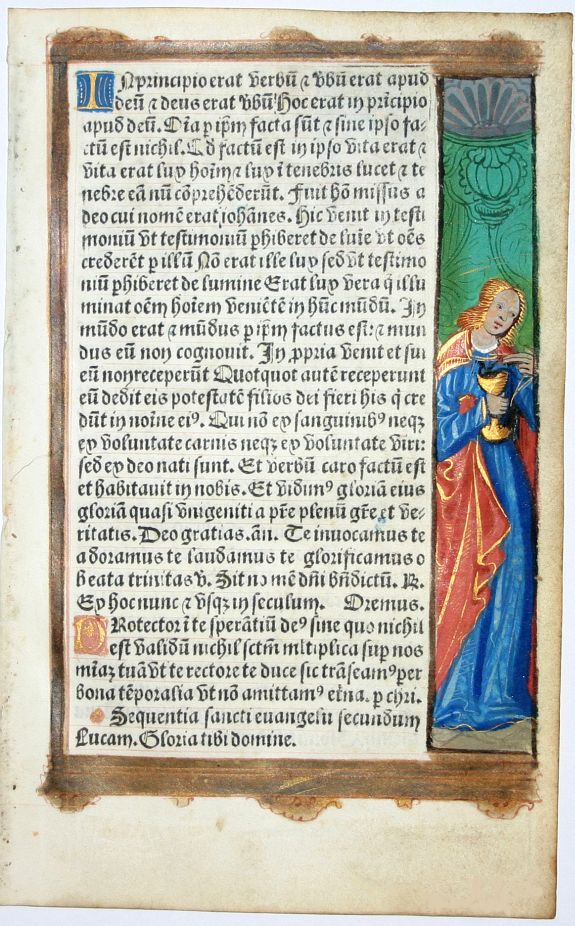 IN principio erat verbū ⁊ v̄bū erat apud
deū ⁊ deus erat v̄bū Hoc erat in prīcipio
apud deū. Oīa p ip̄m facta sūt ⁊ sine ipso fa-
ctū est nichil. Qd̄ factū est in ipso vita erat ⁊
vita erat lux hoīm ⁊ lux ī tenebris lucet ⁊ te
nebre eā nū cōprehēderūt. Fuit hō missus a
deo cui nomē erat Johānes. Hic venit in testi
moniū vt testimoniū phiberet de lumīe vt oēs
crederēt p illū Nō erat ille lux sed vt testimo
niū phiberet de lumine Erat lux vera q̄ illu
minat oēm hoīem veniētē in hūc mūdū. In
mūdo erat ⁊ mūdus p ip̄m factus est: ⁊ mun
dus eū non cognovit. In ꝓpria venit et sui
eū non receperūt Quotquot autē receperunt
eū dedit eis potestatē filios dei fieri his q̄ cre
dūt in noīne eiꝰ. Qui nō ex sanguinibꝰ neqꝫ
ex voluntate carnis neqꝫ ex voluntate viri:
sed ex deo nati sunt. Et verbū caro factū est
et habitavit in nobis. Et vidimꝰ gloriā eius
gloriā quasi vnigeniti a pr̄e plenū gr̄e et ve-
ritatis. Deo gratias. añ. Te invocamus te
adoramus te laudamus te glorificamus o
beata trinitas v̄. Sit nomē dn̄i bn̄dictū. R̄.
Ex hoc nunc ⁊ vsqꝫ in seculum. Oremus.
PRotector ī te speratiū deꝰ sine quo nichil
est validū nichil sctm̄ mltiplica sup nos
mīaꝫ tuā vt te rectore te duce sic trāseamꝰ per
bona tēporalia vt nō amittamꝰ et̄na. p chri.
Sequentia sancti euangelii secundum
Lucam. Gloria tibi domine.